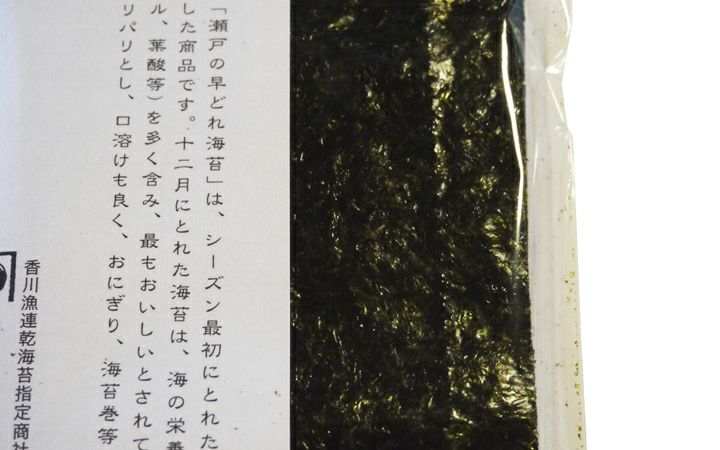 「瀬戸の早どれ海苔」は、シーズン最初にとれた
した商品です。十二月にとれた海苔は、海の栄養
ル、葉酸等）を多く含み、最もおいしいとされて
リパリとし、口溶けも良く、おにぎり、海苔巻等
香川漁連乾海苔指定商社